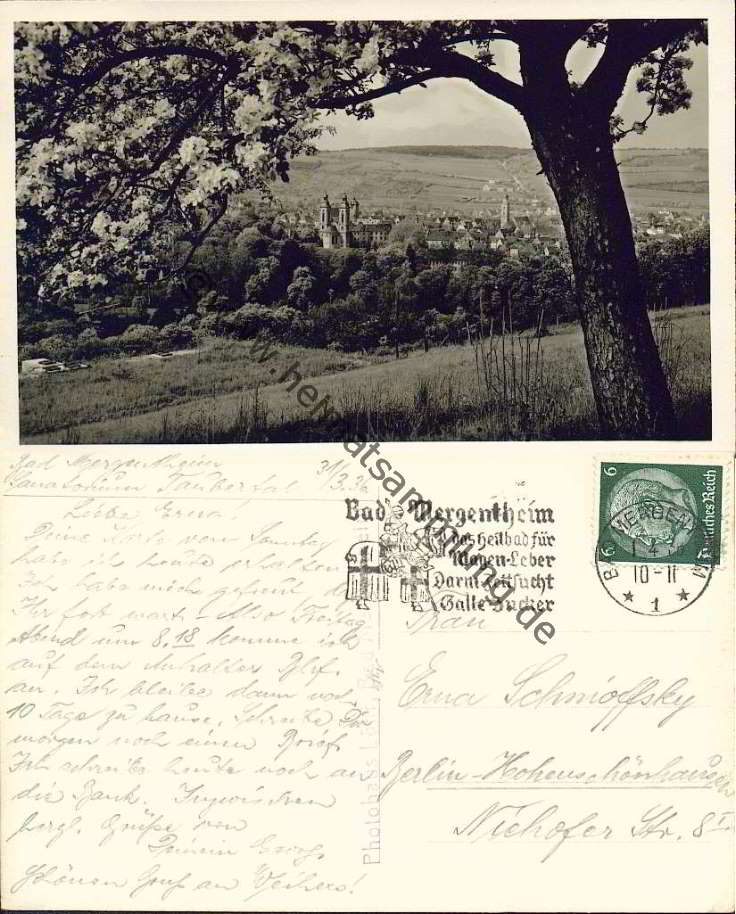 www.heimatsammlung.de
Bad Mergentheim
Sanatorium Taubertal 31/3.36
Liebe Erna!
Deine Karte vom Sonntag
habe ich heute erhalten
Ich habe mich gefreut
Ihr fort wart. Also Freitag
Abend um 8.18 komme ich
auf dem Anhalter Bhf.
an. Ich bleibe dann
10 Tage zu Hause. Schreibe Dir
morgen noch einen Brief.
Ich schreibe heute noch an
die Bank. Inzwischen
herzl. Grüße von
Deinem
Schönen Gruß an Weihers!
Bad Mergentheim
das Heilbad für
Magen-Leber
Darm-Fettsucht
Galle-Zucker
6 6
Deutsches Reich
BAD MERGENTHEIM
10-11
★ 1 ★
Frau
Erna Schmioffsky
Berlin-Hohenschönhausen
Niehofer Str. 8
Photohaus